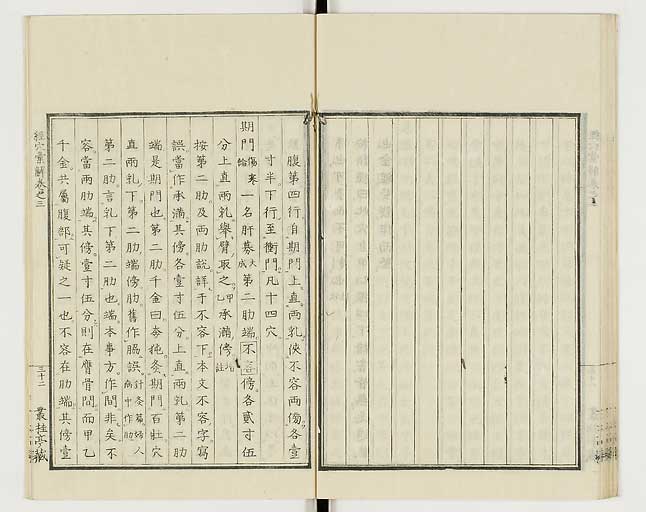 腹第四行自期門上直兩乳俠不容兩傍各壹
寸半下行至衝門凡十四穴
期門傷寒論一名肝募大成第二肋端不容傍各貳寸伍
分上直兩乳舉臂取之甲乙承滿傍
按第二肋及兩肋說詳于不容下本文不容字寫
誤當作承滿其傍各壹寸伍分上直兩乳第二肋
端是期門也第二肋千金曰奔㹠灸期門百壯穴
直兩乳下第二肋端傍肋舊作腸誤針灸篇婦人病中作肋
第二肋言乳下第二肋也端本事方作間非矣不
容當兩肋端其傍壹寸伍分則在膺骨間而甲乙
千金共屬腹部可疑之一也不容在肋端其傍壹
經穴彙解卷之三
三十二
叢桂亭藏